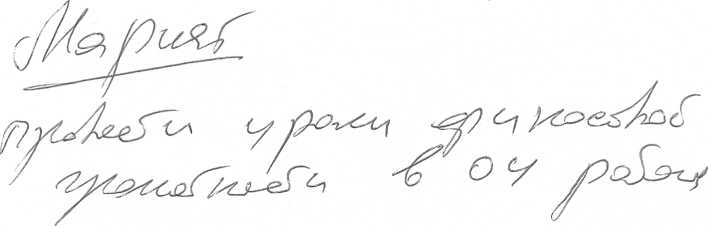 Марият
провести уроки финансовой
грамотности в ОУ района